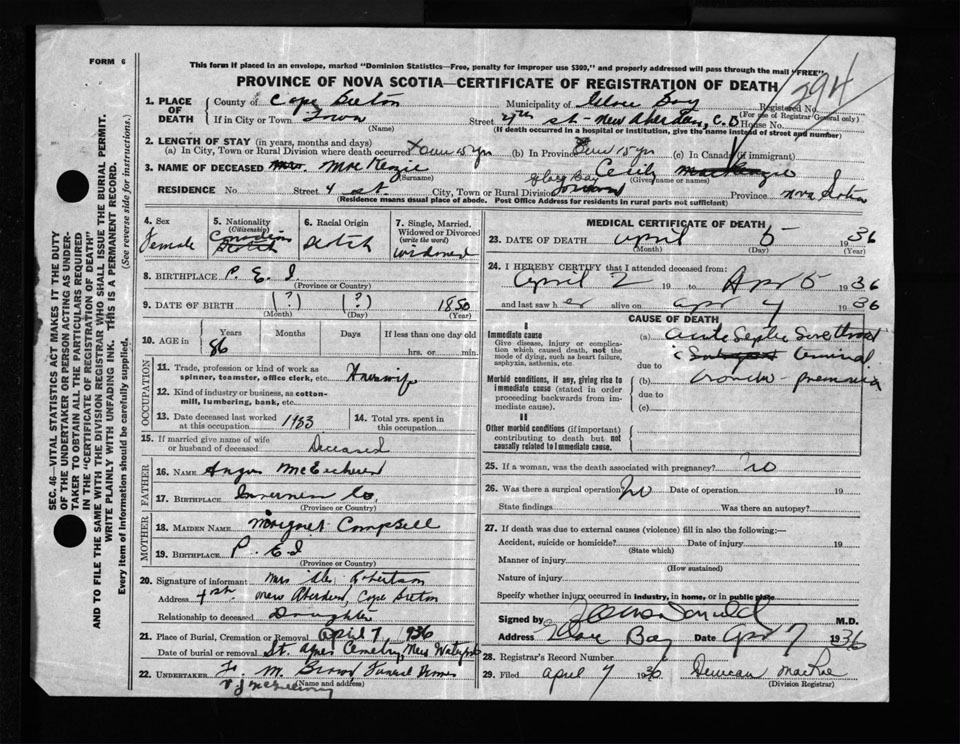 FORM 6
This form if placed in an envelope, marked "Dominion Statistics—Free, penalty for improper use $300," and properly addressed will pass through the mail "FREE"
PROVINCE OF NOVA SCOTIA—CERTIFICATE OF REGISTRATION OF DEATH
294
1. PLACE OF DEATH
County of Cape Breton Municipality of Glace Bay Registered No.
(For use of Registrar General only)
If in City or Town Town Street 4th St - New Aberdeen, C.B House No.
(Name) (If death occurred in a hospital or institution, give the name instead of street and number)
2. LENGTH OF STAY (in years, months and days)
(a) In City, Town or Rural Division where death occurred over 45 yrs (b) In Province (c) In Canada (if immigrant)
3. NAME OF DECEASED Mrs. MacKenzie Cecily MacKenzie
(Surname) (Given name or names)
RESIDENCE No Street 4 St City, Town or Rural Division Glace Bay Province Nova Scotia
(Residence means usual place of abode. Post Office Address for residents in rural parts not sufficient)
4. Sex
Female
5. Nationality (Citizenship)
Canadian
Scotch
6. Racial Origin
Scotch
7. Single, Married, Widowed or Divorced (write the word)
widowed
8. BIRTHPLACE P. E. I
(Province or Country)
9. DATE OF BIRTH (?) (?) 1850
(Month) (Day) (Year)
10. AGE in Years Months Days If less than one day old
86 hrs. or min.
OCCUPATION
11. Trade, profession or kind of work as spinner, teamster, office clerk, etc. Housewife
12. Kind of industry or business, as cotton-mill, lumbering, bank, etc.
13. Date deceased last worked at this occupation 1933
14. Total yrs. spent in this occupation
15. If married give name of wife or husband of deceased Deceased
FATHER
16. NAME Angus McEachern
17. BIRTHPLACE Inverness Co
(Province or Country)
MOTHER
18. MAIDEN NAME Margaret Campbell
19. BIRTHPLACE P. E. I
(Province or Country)
20. Signature of informant Mrs Robertson
Address 4 St. New Aberdeen, Cape Breton
Relationship to deceased Daughter
21. Place of Burial, Cremation or Removal April 7, 1936
Date of burial or removal St. Agnes Cemetery, New Waterford
22. UNDERTAKER F. M. Brown, Funeral Homes
(Name and address)
MEDICAL CERTIFICATE OF DEATH
23. DATE OF DEATH April 5 1936
(Month) (Day) (Year)
24. I HEREBY CERTIFY that I attended deceased from:
April 2 19 to Apr 5 1936
and last saw her alive on Apr 4 1936
CAUSE OF DEATH
I
Immediate cause
Give disease, injury or complication which caused death, not the mode of dying, such as heart failure, asphyxia, asthenia, etc.
(a) Acute Septic Sore throat
due to c Terminal
Morbid conditions, if any, giving rise to immediate cause (stated in order proceeding backwards from immediate cause).
(b) broncho-pneumonia
due to
(c)
II
Other morbid conditions (if important) contributing to death but not causally related to Immediate cause.
25. If a woman, was the death associated with pregnancy? no
26. Was there a surgical operation? no Date of operation 19
State findings Was there an autopsy?
27. If death was due to external causes (violence) fill in also the following:—
Accident, suicide or homicide? Date of injury 19
(State which)
Manner of injury
(How sustained)
Nature of injury
Specify whether injury occurred in industry, in home, or in public place
Signed by M.D.
Address Glace Bay Date Apr 7 1936
28. Registrar's Record Number
29. Filed April 7 1936 Duncan MacRae
(Division Registrar)
SEC. 46—VITAL STATISTICS ACT MAKES IT THE DUTY
OF THE UNDERTAKER OR PERSON ACTING AS UNDER-
TAKER TO OBTAIN ALL THE PARTICULARS REQUIRED
IN THE "CERTIFICATE OF REGISTRATION OF DEATH"
AND TO FILE THE SAME WITH THE DIVISION REGISTRAR WHO SHALL ISSUE THE BURIAL PERMIT.
WRITE PLAINLY WITH UNFADING INK. THIS IS A PERMANENT RECORD.
Every item of Information should be carefully supplied. (See reverse side for instructions.)